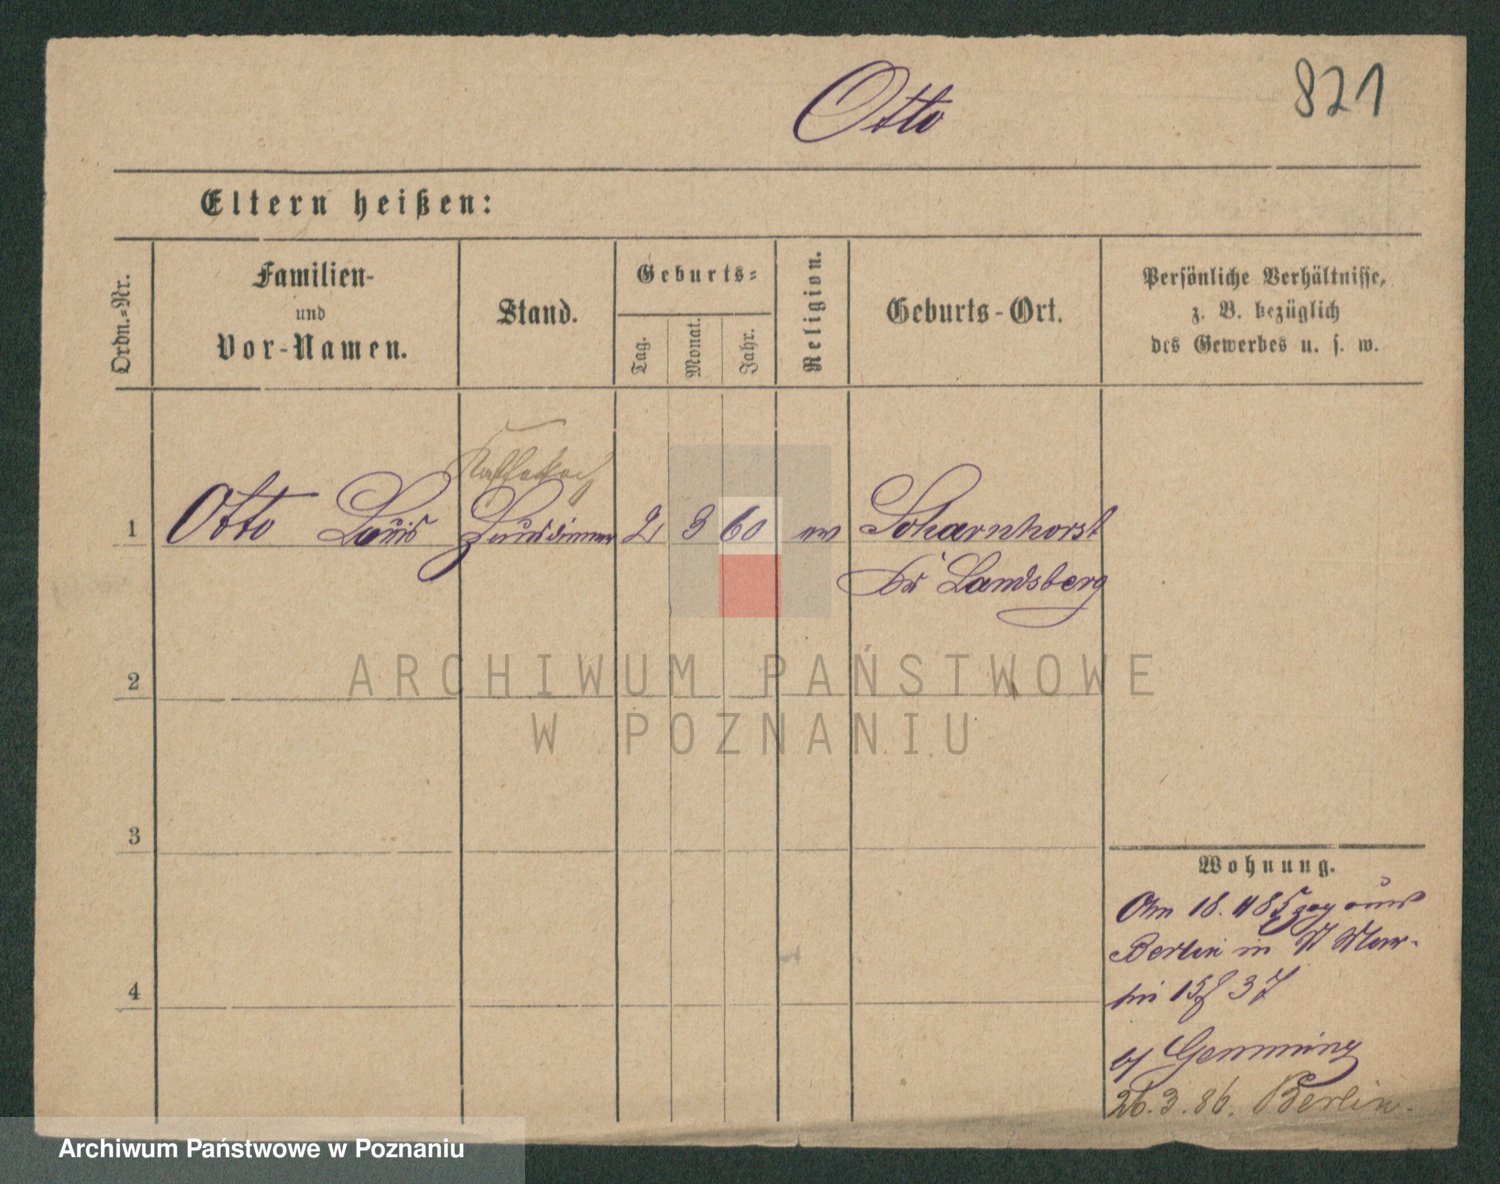 Otto
821
Eltern heißen:
Ordn.-Nr.
Familien-
und
Vor-Namen.
Stand.
Geburts-
Tag.
Monat.
Jahr.
Religion.
Geburts-Ort.
Persönliche Verhältnisse,
z. B. bezüglich
des Gewerbes u. s. w.
1 Otto Louis 21 3 60 ev Scharnhorst
Landsberg
2
3
4
Wohnung.
Am 18. 4 85 zog aus
Berlin in St Mar-
tin 37
Gemming
26.3.86. Berlin.
ARCHIWUM PAŃSTWOWE
W POZNANIU
Archiwum Państwowe w Poznaniu